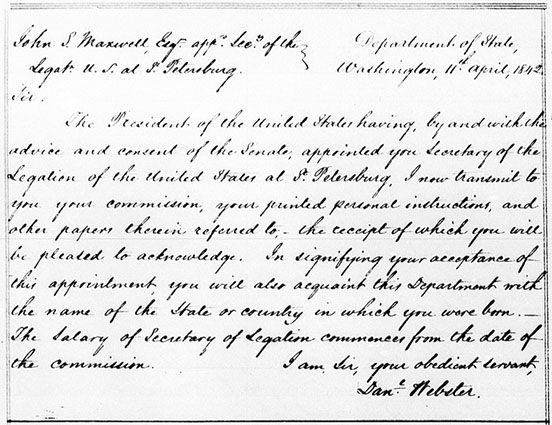 John S. Maxwell, Esqr. appd. Secy. of the
Legatn. U. S. at St. Petersburg.
Department of State,
Washington, 11th April, 1842.
Sir.
The President of the United States having, by and with the
advice and consent of the Senate, appointed you Secretary of the
Legation of the United States at St. Petersburg, I now transmit to
you your commission, your printed personal instructions, and
other papers therein referred to, - the receipt of which you will
be pleased to acknowledge. In signifying your acceptance of
this appointment you will also acquaint this Department with
the name of the State or country in which you were born. —
The Salary of Secretary of Legation commences from the date of
the commission. I am, Sir, your obedient servant,
Danl. Webster.